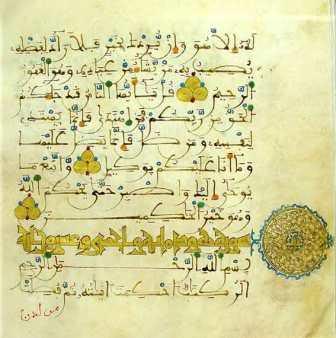 له الا هو وان يردك بخير فلا راد لفضله
يصيب به من يشاء من عباده وهو الغفور
الرحيم قل يايها الناس قد جاءكم
الحق من ربكم فمن اهتدى فانما يهتدي
لنفسه ومن ضل فانما يضل عليها
وما انا عليكم بوكيل واتبع ما
يوحى اليك واصبر حتى يحكم الله
وهو خير الحكمين
سورة هود واحدى وعشرون
بسم الله الرحمن الرحيم
الر كتب احكمت ايته ثم فصلت
من لدن